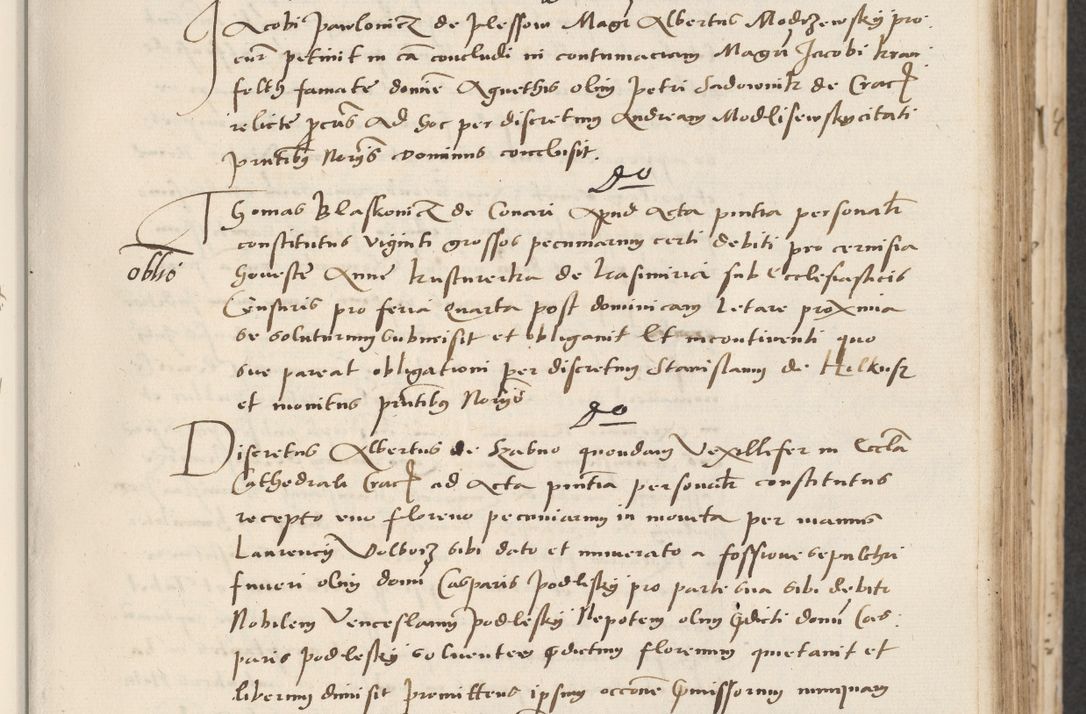 Jacobi Pawlowicz de Plessow Magr Albertus Modrzewsky pro
cur petivit in ca concludi in contumaciam Magri Jacobi Kran
felth famate domine Agnethis olim Petri Sadownik de Crac
relicte pcuris Ad hoc per discretum Andream Modlisewsky citati
pntibus Noriis Dominus conclusit.
Do
Thomas Blaskowicz de Conari Apud Acta pntia personalr
constitutus viginti grossos pecuniarum certi debiti pro cervisia
obbo
honeste Anne Kusnierka de Kasimiria sub Ecclesiasticis
Censuris pro feria Quarta post dominicam Letare proxima
se soluturum submisit et obligavit Et incontinenti quo
sue pareat obligationi per discretum Stanislaum de Hilkusz
et monitus pntibus Noriis
Do
Discretus Albertus de Szabno quondam Vexillifer in Eccla
Cathedrali Crac ad Acta pntia personalr constitutus
recepto uno floreno pecuniarum in moneta per manus
Laurencii Dolboz sibi dato et numerato a fossione sepulchri
funeri olim domi Casparis Podlesky pro parte sua sibi debito
Nobilem Venceslaum Podlesky Nepotem olim pdicti domi Cas
paris Podlesky solventem pdictum florenum quietavit et
liberum dimisit Promittens ipsum occone pmissorum nunquam